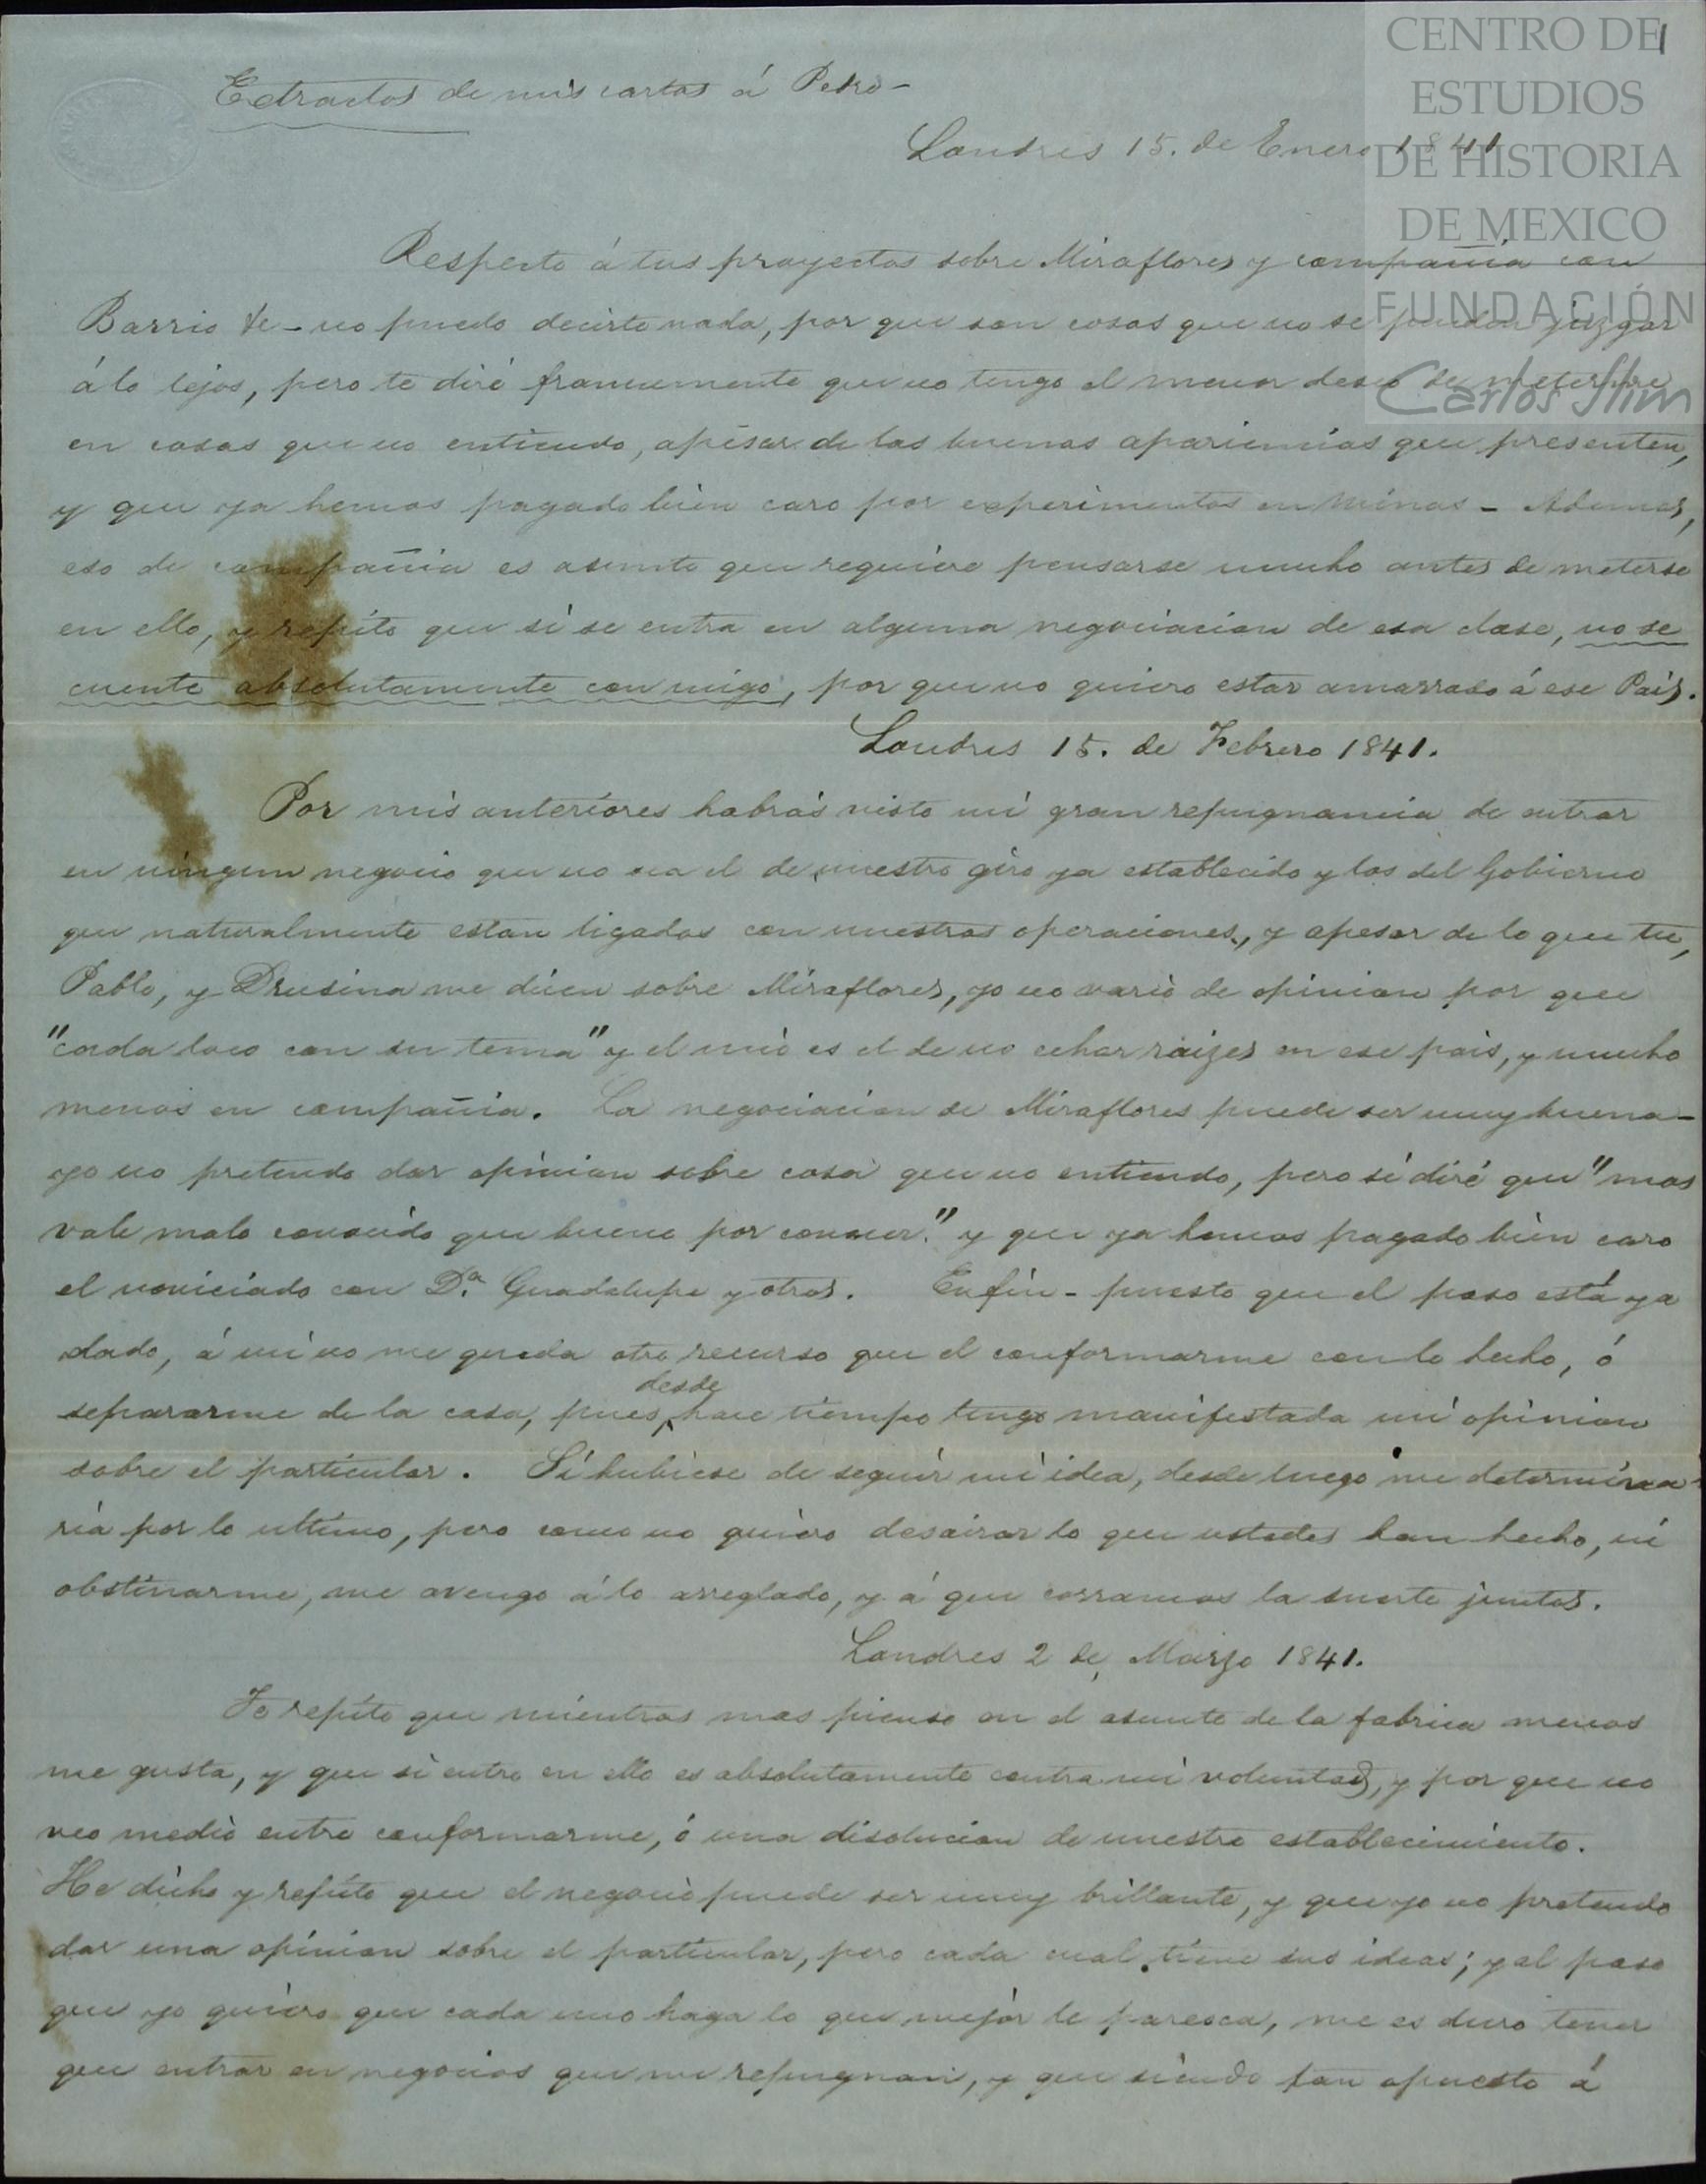 CENTRO DE
ESTUDIOS
DE HISTORIA
DE MEXICO
FUNDACIÓN
Carlos Slim
1
Extractos de mis cartas á Pedro-
Londres 15. de Enero 1841
Respecto á tus proyectos sobre Miraflores y compañia con
Barrio &c - no puedo decirte nada, por que son cosas que no se pueden juzgar
á lo lejos, pero te diré francamente que no tengo el menor deseo de meterme
en cosas que no entiendo, apesar de las buenas apariencias que presenten,
y que ya hemos pagado bien caro por experimentos en Minas - Ademas,
eso de compañia es asunto que requiere pensarse mucho antes de meterse
en ello, y repito que si se entra en alguna negociacion de esa clase, no se
cuente absolutamente con migo, por que no quiero estar amarrado á ese Pais.
Londres 15. de Febrero 1841.
Por mis anteriores habrás visto mi gran repugnancia de entrar
en ningun negocio que no sea el de nuestro giro ya establecido y los del Gobierno
que naturalmente estan ligados con nuestras operaciones, y apesar de lo que tu,
Pablo, y Drusina me dicen sobre Miraflores, yo no vario de opinion por que
"cada loco con su tema" y el mio es el de no echar raizes en ese pais, y mucho
menos en compañia. La negociacion de Miraflores puede ser muy buena -
yo no pretendo dar opinion sobre cosa que no entiendo, pero si diré que "mas
vale malo conocido que bueno por conocer." y que ya hemos pagado bien caro
el noviciado con Da. Guadalupe y otros. Enfin - puesto que el paso está ya
dado, á mi no me queda otro recurso que el conformarme con lo hecho, ó
separarme de la casa, pues desde hace tiempo tengo manifestada mi opinion
sobre el particular. Si hubiese de seguir mi idea, desde luego me determina-
ria por lo ultimo, pero como no quiero desairar lo que ustedes han hecho, ni
obstinarme, me avengo á lo arreglado, y á que corramos la suerte juntos.
Londres 2 de Marzo 1841.
Te repito que mientras mas pienso en el asunto de la fabrica menos
me gusta, y que si entro en ello es absolutamente contra mi voluntad, y por que no
veo medio entre conformarme, ó una disolucion de nuestro establecimiento.
He dicho y repito que el negocio puede ser muy brillante, y que yo no pretendo
dar una opinion sobre el particular, pero cada cual tiene sus ideas; y al paso
que yo quiero que cada uno haga lo que mejor le paresca, me es duro tener
que entrar en negocios que me repugnan, y que siendo tan opuesto á